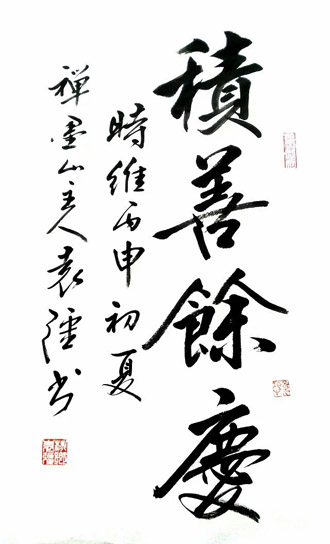 積善餘慶
時維丙申初夏
禅墨山主人袁强书